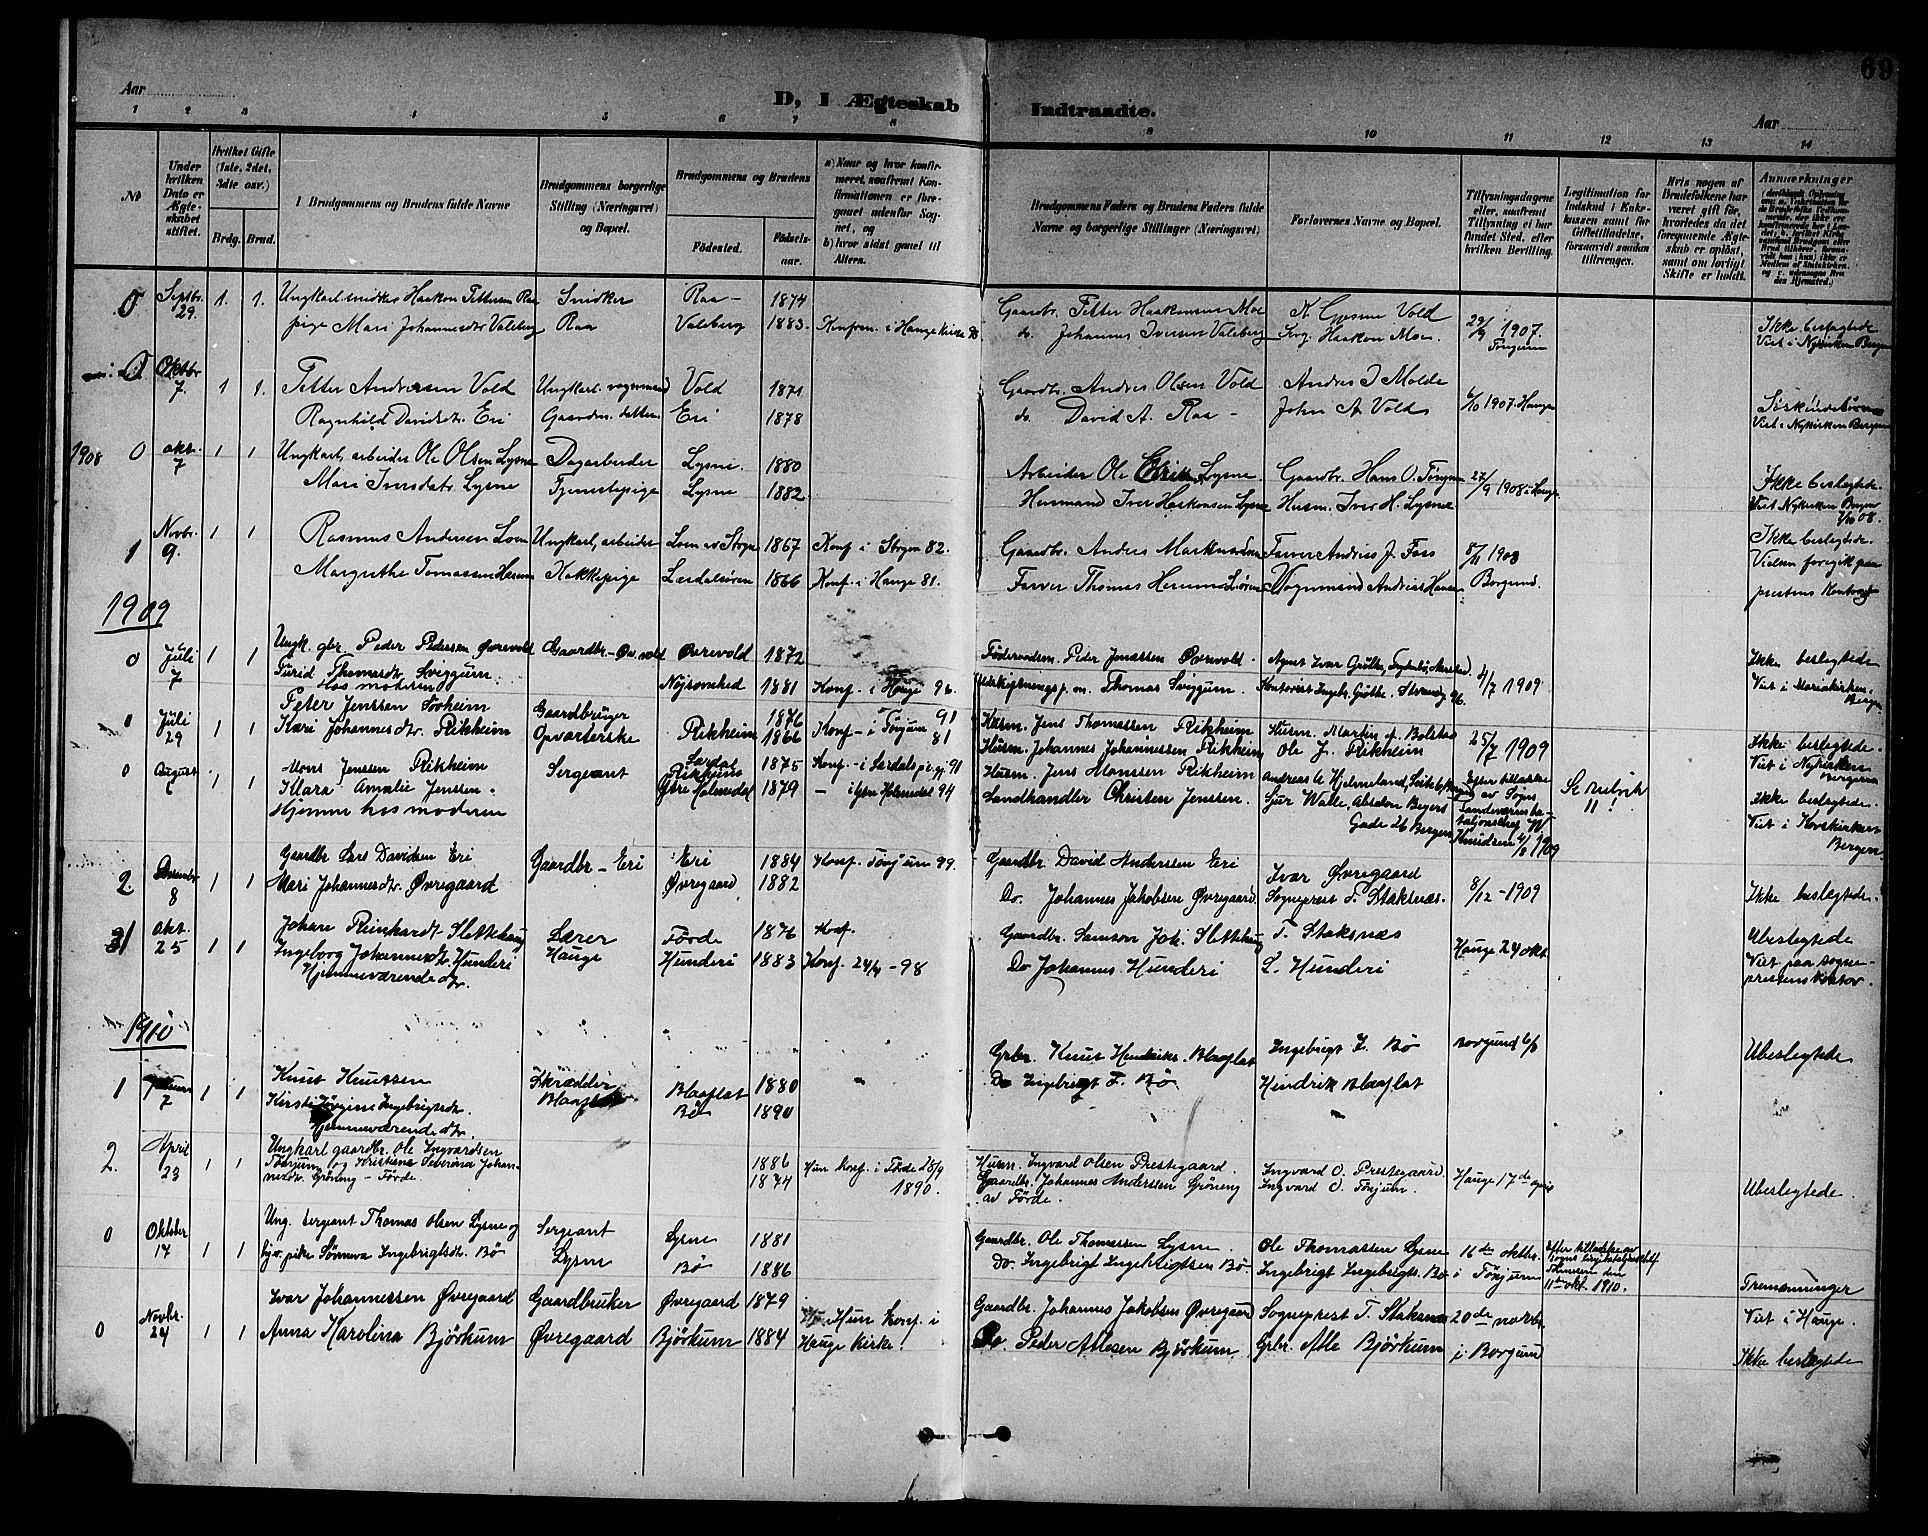 69
Aar
D, I Ægteskab Indtraadte.
Aar
1 2 3 4 5 6 7 8 9 10 11 12 13 14
No
Under hvilken Dato er Ægteskabet stiftet.
Hvilket Gifte (1ste, 2det, 3die osv.)
Brdg. Brud.
I Brudgommens og Brudens fulde Navne
Brudgommens borgerlige Stilling (Næringsvei) og Bopæl.
Brudgommens og Brudens
Fødested.
Fødselsaar.
a) Naar og hvor konfirmeret, saafremt Konfirmationen er foregaaet udenfor Sognet, og
b) hvor sidst gaaet til Alters.
Brudgommens Faders og Brudens Faders fulde Navne og borgerlige Stillinger (Næringsvei)
Forlovernes Navne og Bopæl.
Tillysningsdagene eller, saafremt Tillysning ei har fundet Sted, efter hvilken Bevilling.
Legitimation for Indskud i Enkekassen samt for Giftetilladelse, forsaavidt saadan tiltrænges.
Hvis nogen af Brudefolkene har været gift før, hvorledes da det foregaaende Ægteskab er opløst, samt om lovligt Skifte er holdt.
Anmærkninger
0 Septbr. 29. 1. 1. Ungkarl snidker Haakon Pettersen Raa Snidker Raa 1874 Gaardbr. Petter Haakonsen Moe K. Gjesme Vold 29/9 1907. Tønjum Ikke beslægtede
pige Mari Johannesdtr Valeberg Raa Valeberg 1883. Konfirm. i Hauge kirke do. Johannes Iversen Valeberg Serg. Haakon Moe. Viet i Nykirken Bergen
0 Oktbr 7. 1 1. Petter Andersen Vold Ungkarl. vognmand Vold 1871 Gaardbr. Andres Olsen Vold Andres J Molde 6/10 1907. Hauge Søskendebørn
Ragnhild Davidsdtr. Eri Gaardm. datter Eri 1878 do. David A. Raa John A Vold Viet i Nykirken Bergen
1908 0 okt. 7 1 1 Ungkarl, arbeider Ole Olsen Lysne Dagarbeider Lysne. 1880 Arbeider Ole Lysne Gaardbr. Hans O. Tønjum 27/9 1908 i Hauge Ikke beslægtede.
Mari Iversdatr. Lysne Tjenestepige Lysne 1882 Husmand Iver Haakonsen Lysne Husm. Iver H. Lysne Viet Nykirken Bergen 7/10 08.
1 Novbr. 9. 1 1 Rasmus Andersen Loen Ungkarl, arbeider Loen av Stryn 1867 Konf. i Stryn 82. Gaardbr. Anders Markus Loen Farver Andries J. Foss 8/11 1908 Ikke beslægtede.
Margrethe Tomassen Kokkepige Lærdalsøren 1866 Konf. i Hauge 81. Farver Thomas Vognmand Andrias Hansen Borgund. Vielsen foregik paa prestens Kontor
1909
0 Juli 7 1 1 Ungk. gbr. Peder Pedersen Øvrevold Gaardbr. - Øv. vold Øvrevold 1872 Føderaadsm. Peder Jonassen Øvrevold. 4/7 1909 Ikke beslægtede
Turid Thomasdtr Sviggum. Hos moderen Nøisomhed 1881 Konf. i Hauge 96. Thomas Sviggum. Viet i Mariakirken. Bergen
0 Juli 29 1 1 Peter Jenssen Sørheim Gaardbruger 1876 Konf. - i Tønjum 91 Husm. Jens Thomassen Rikheim Husm. Martin J. Bolstad 25/7 1909 Ikke beslægtede.
Kari Johannesdtr. Rikheim Opvarterske Rikheim 1866 81 Husm. Johannes Johannessen Rikheim Ole J. Rikheim Viet i Nykirken Bergen
0 August 1 1 Mons Jenssen Rikheim Sergeant Lærdal Rikheim 1875 Konf. - i Lærdals pr.gj. 91 Husm. Jens Monssen Rikheim Andreas Hjelmeland, Efter tilladelse av Sogns Landeværnsbataljonschef Knudsen 4/8 1909 Ikke beslægtede.
Klara Amalie Jenssen. Ytre Holmedal 1879 - i Ytre Holmedal 94 Landhandler Christen Jenssen. Sjur Walle, Absalon Beyers Gade 26 Bergen Viet i Korskirken Bergen.
Hjemme hos moderen
2. December 8 1 1 Gaardbr Lars Davidsen Eri Gaardbr - Eri Eri 1884 Konf. Tønjum 99. Gaardbr. David Anderssen Eri Ivar Øvregaard 8/12 - 1909 Ikke beslægtede.
Mari Johannesdtr. Øvregaard Øvregaard 1882 Do. Johannes Jakobsen Øvregaard Sogneprest T. Staksnæs.
okt. 25 1 1 Johan Reinhardt Slettehaug Lærer Førde 1876 Konf. Gaardbr. Samson Joh. Slettehaug T. Staksnæs Hauge 24 okt. Ubeslegtede
Ingeborg Johannesdtr. Hunderi Hauge Hunderi 1883 Konf. 24/4 - 98 Do Johannes Hunderi L. Hunderi Viet paa sogneprestens kontor.
Hjemmeværende dtr.
1910
1 Februar 7 1 1 Knut Knutssen Skrædder Blaaflat 1880 Grbr. Knut Hendriks. Blaaflat Ingebrigt I. Bø Borgund Ubeslegtede
Kirsti Jørgine Ingebrigtsdtr. Blaaflat Bø 1890 Do Ingebrigt F. Bø Hendrik Blaaflat
Hjemmeværende dtr.
2. April 23 1 1 Ungkarl gaardbr. Ole Ingvardsen 1886 Hun konf. i Førde 28/9 1890. Husm. Ingvard Olsen Prestegaard. Ingvard O. Prestegaard Hauge 17de april Ubeslegtede.
Tønjum og Kristiane Severina Johannesdtr. Grøning - Førde. 1874 Gaardbr. Johannes Anderssen Grøning av Førde. Ingvard O. Tønjum.
0 Oktober 17 1 1 Ung. sergeant Thomas Olsen Lysne og Sergeant Lysne 1881 Gaardbr. Ole Thomassen Lysne. Ole Thomassen Lysne 16de oktbr. i Tønjum Efter tilladelse av 11te okt. 1910. Tremænninger
pike Sønneva Ingebrigtsdtr. Bø Lysne Bø 1886 Do. Ingebrigt Ingebrigtsen Bø. Ingebrigt Ingebrigts. Bø
0 Novbr. 24 1 1 Ivar Johannessen Øvregaard Gaardbruker Øvregaard 1879 Hun Konf. i Gaardbr. Johannes Jakobsen Øvregaard Sogneprest T. Staksnæs 20de novbr. Viet i Hauge.
Anna Karolina Bjørkum Øvregaard Bjørkum 1884 Hauge Kirke. Do Peder Atlesen Bjørkum Grbr. Atle Bjørkum i Borgund Ikke beslegtede